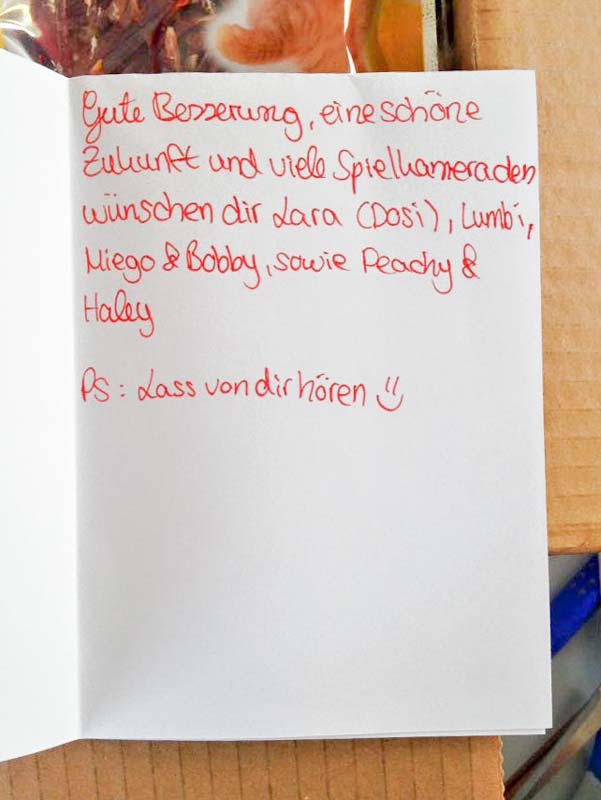 Gute Besserung, eine schöne
Zukunft und viele Spielkameraden
wünschen dir Lara (Dosi), Lumbi,
Miego & Bobby, sowie Peachy &
Haley
PS: Lass von dir hören